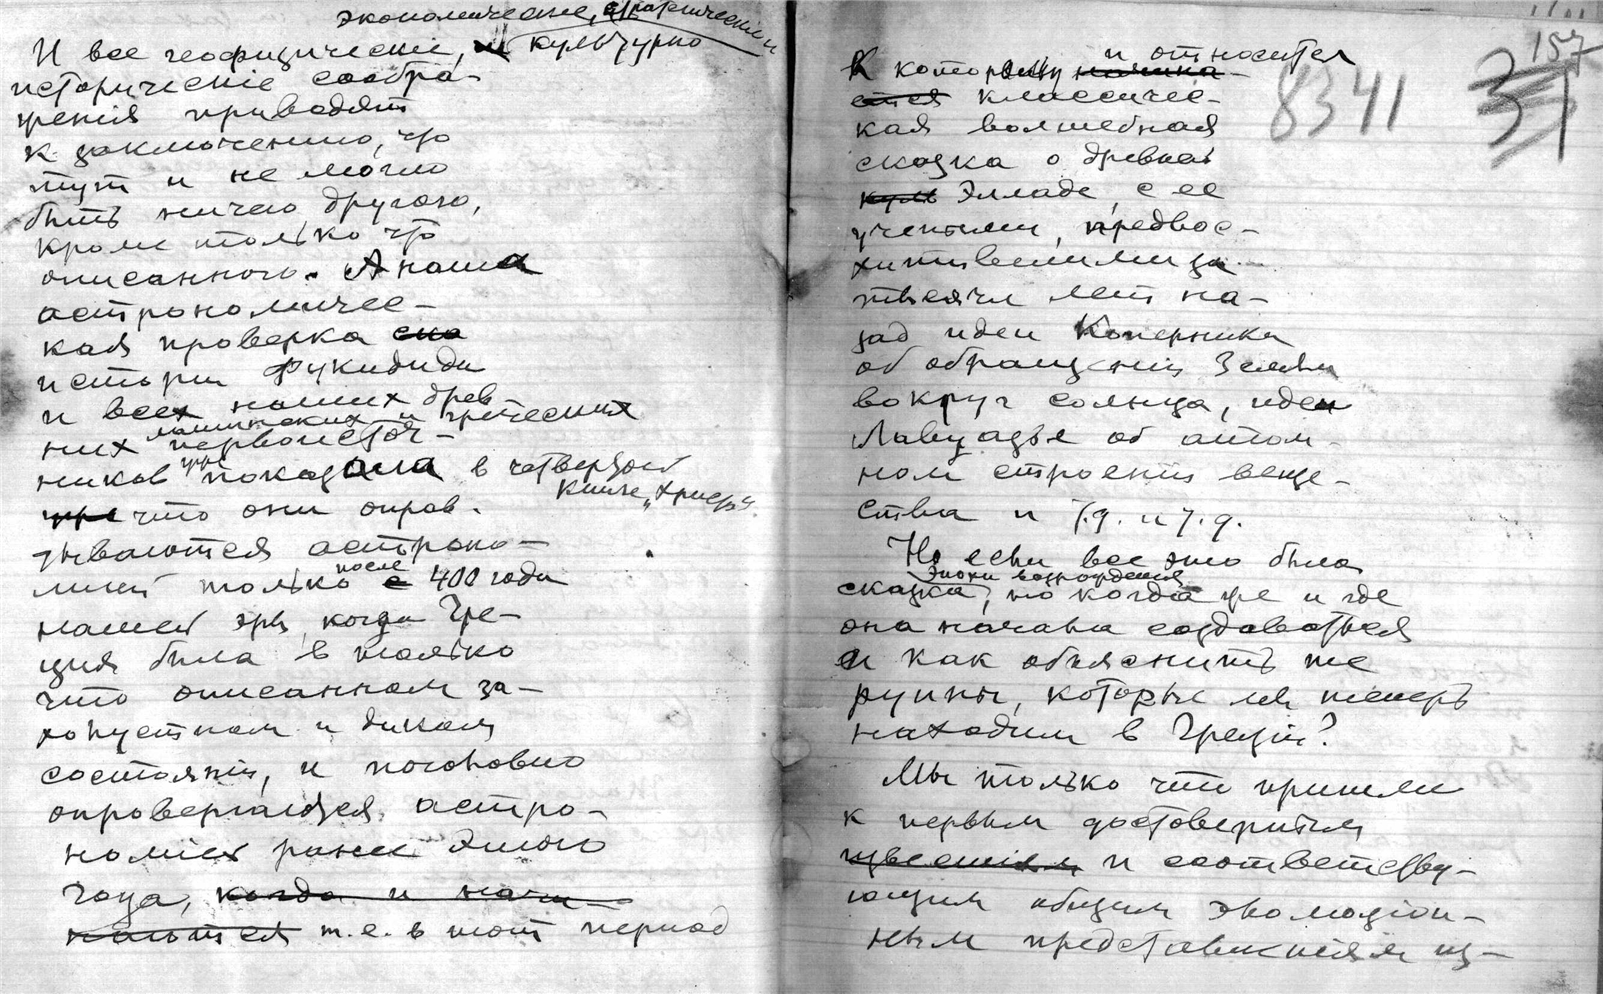 экономические, стратегические и
И все геофизические, культурно
историческіе сообра-
женія приводят
к заключению, что
тут и не могло
быть ничего другого,
кроме только что
описанного. А наша
астрономичес-
кая проверка ска
истории Фукидида
и всех наших древ
них латинских и греческих
первоисточ-
ников уже показала в четвертой
книге "Христа"
уже что они оправ-
дываются астроно-
мией только после с 400 года
нашей эры, когда Гре-
ция была в только
что описанном за-
холустном и диком
состояніи, и поголовно
опровергаются астро-
номіей ранее этого
года, когда и начи-
наются т.е. в тот период
157
8341
31
К которому и относится
начина-
ется классичес-
кая волшебная
сказка о древней
куль Элладе, с ее
учеными, предвос-
хитившими за
тысячи лет на-
зад идеи Коперника
об обращеніи Земли
вокруг солнца, идеи
Лавуазье об атом-
ном строеніи веще-
ства и т.д. и т.д.
Но если все это была
сказка эпохи возрождения, то когда же и где
она начала создаваться
и как объяснить те
руины, которые мы теперь
находим в Греціи?
Мы только что пришли
к первым достоверным
известіям и соответству-
ющим общим эволюціон-
ным представленіям из-